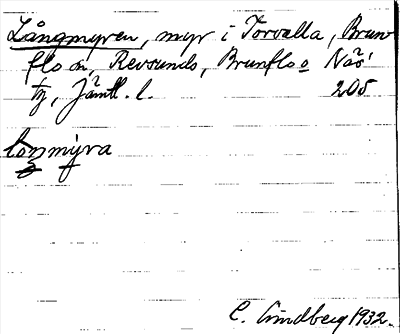 Långmyren, myr i Torvalla, Brun-
flo sn, Revsunds, Brunflo o Näs'
tg, Jämtl. l. 205
lo̳ŋmy̱ra
C. Lindberg 1932.